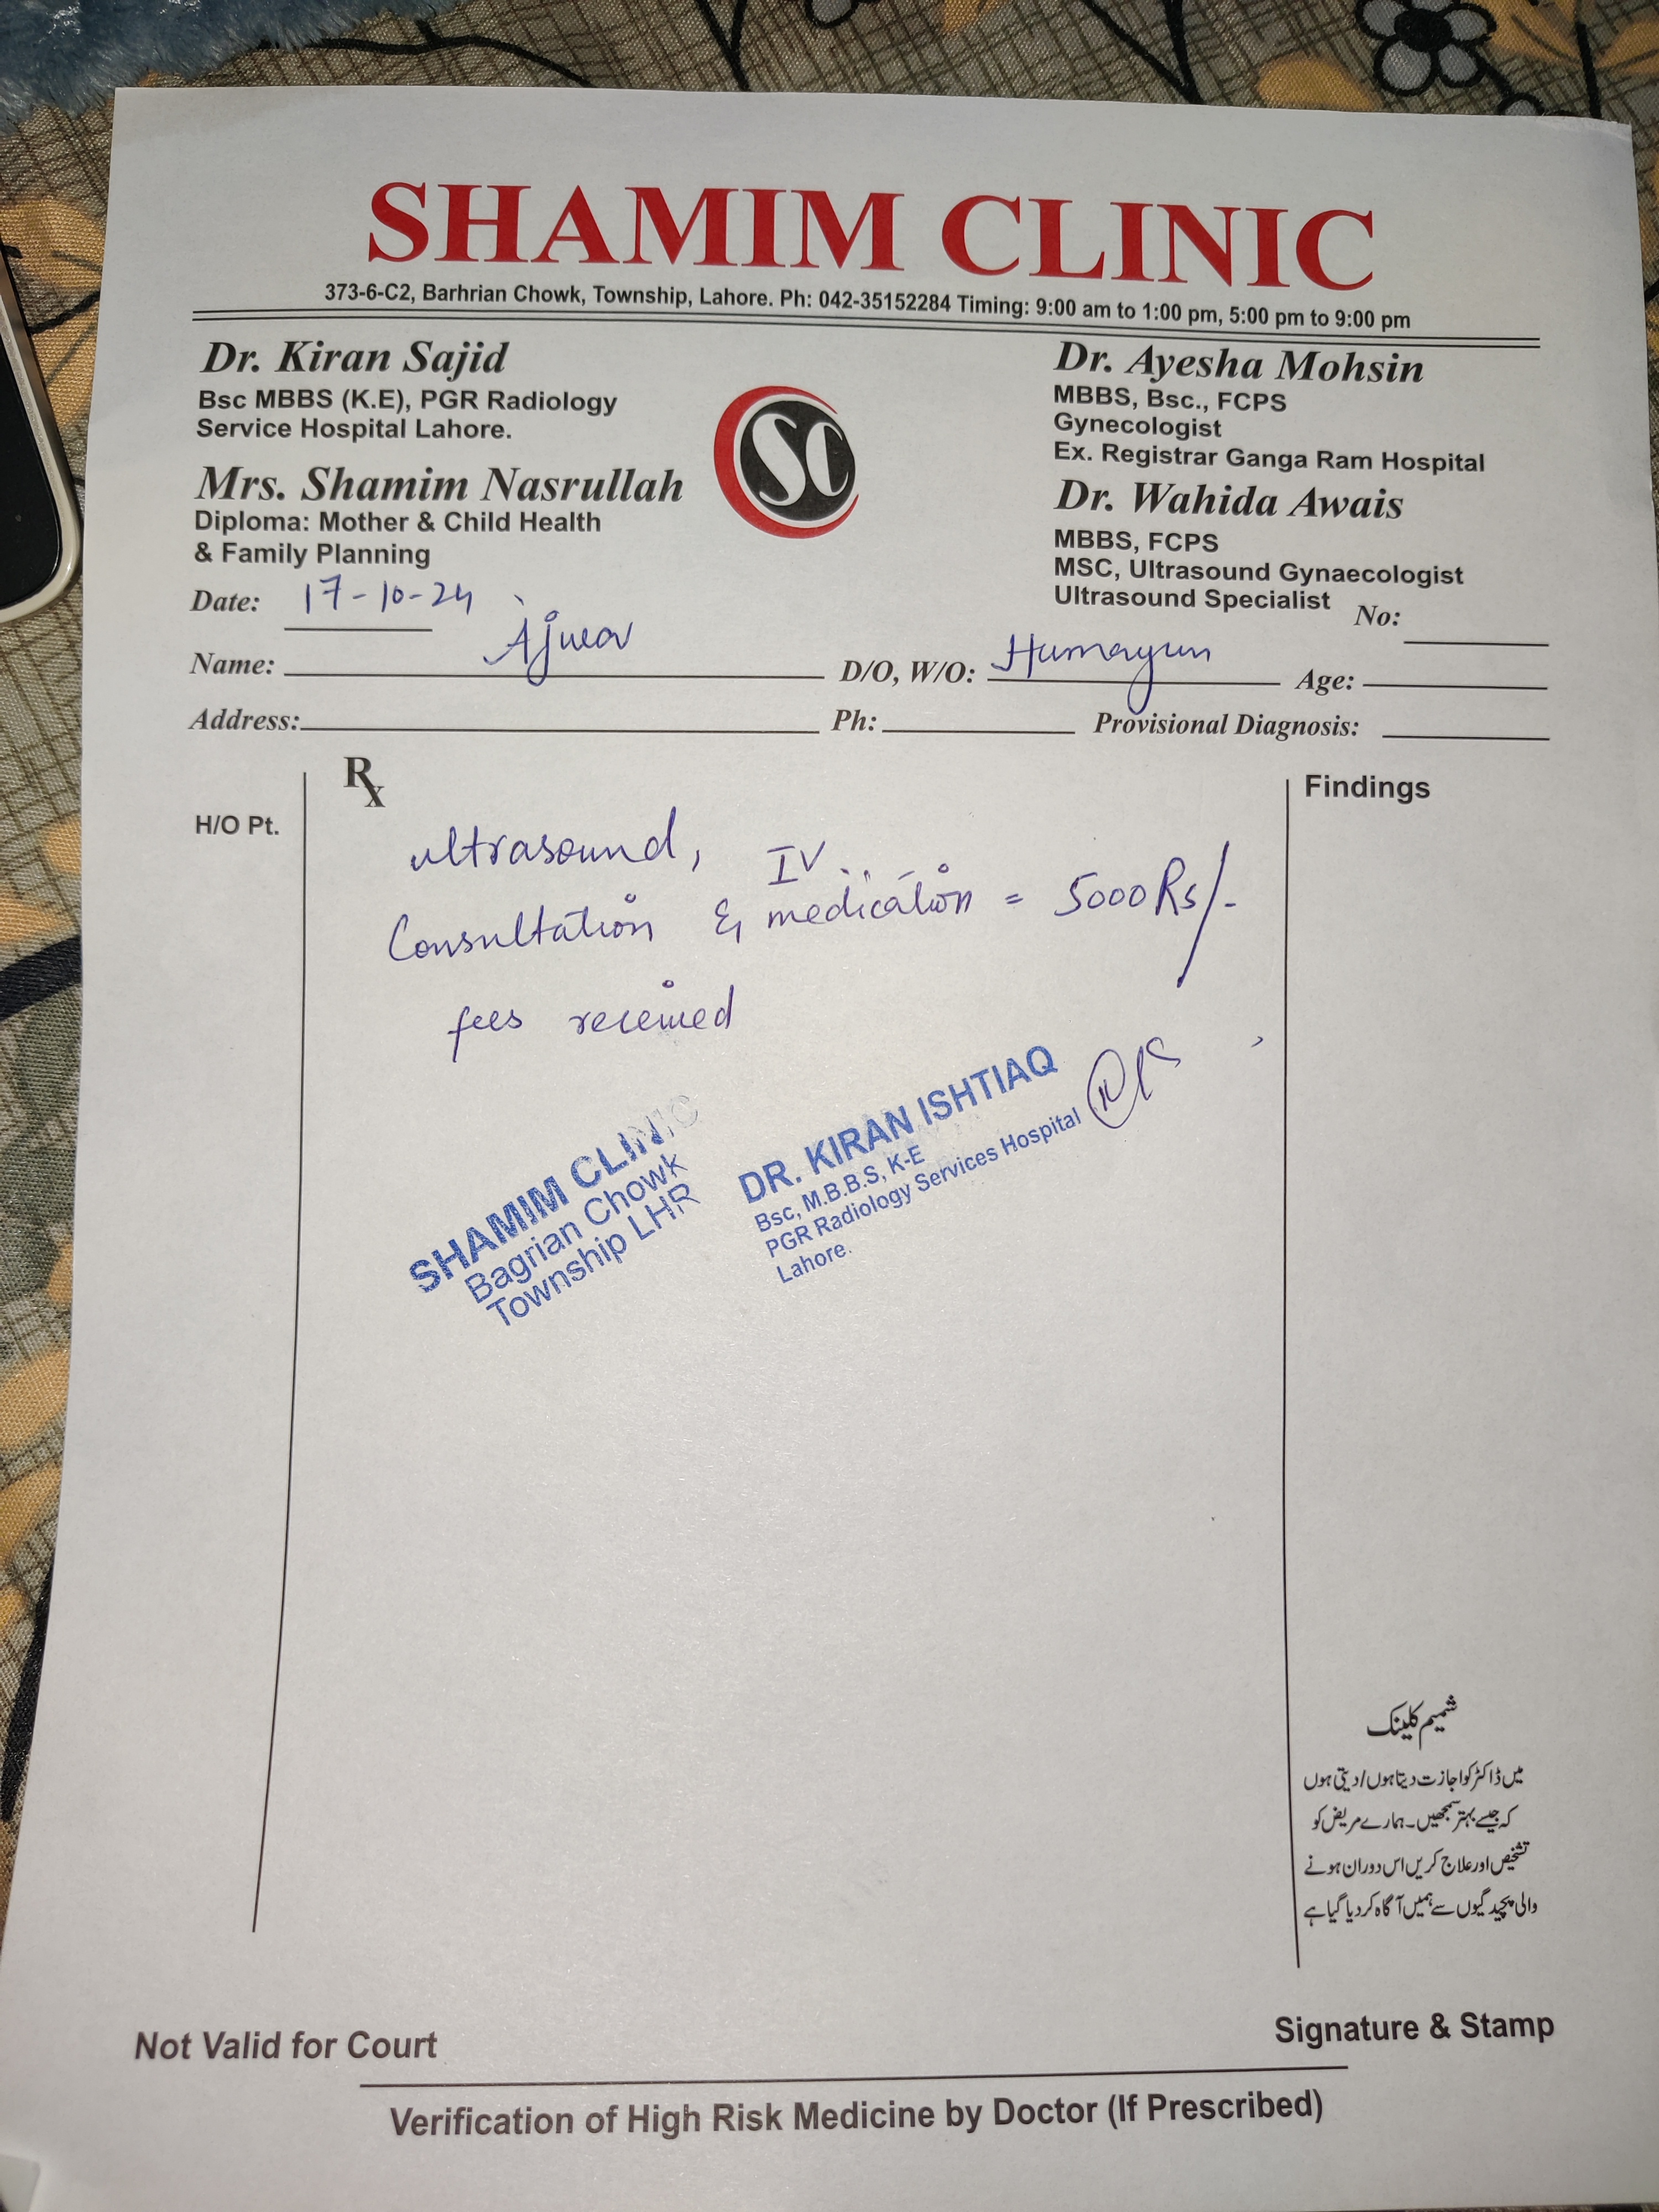 SHAMIM CLINIC
373-6-C2, Barhrian Chowk, Township, Lahore. Ph: 042-35152284 Timing: 9:00 am to 1:00 pm, 5:00 pm to 9:00 pm
Dr. Kiran Sajid
Bsc MBBS (K.E), PGR Radiology
Service Hospital Lahore.
Mrs. Shamim Nasrullah
Diploma: Mother & Child Health
& Family Planning
SC
Dr. Ayesha Mohsin
MBBS, Bsc., FCPS
Gynecologist
Ex. Registrar Ganga Ram Hospital
Dr. Wahida Awais
MBBS, FCPS
MSC, Ultrasound Gynaecologist
Ultrasound Specialist
Date: 17-10-24 No:
Name: Ajwa D/O, W/O: Humayun Age:
Address: Ph: Provisional Diagnosis:
H/O Pt.
Rx
Findings
ultrasound, IV
Consultation & medication = 5000 Rs/-
fees received
SHAMIM CLINIC
Bagrian Chowk
Township LHR
DR. KIRAN ISHTIAQ
Bsc, M.B.B.S, K-E
PGR Radiology Services Hospital
Lahore.
شمیم کلینک
میں ڈاکٹر کو اجازت دیتا ہوں/دیتی ہوں
کہ جیسے بہتر سمجھیں۔ ہمارے مریض کو
تشخیص اور علاج کریں اس دوران ہونے
والی پیچیدگیوں سے ہمیں آگاہ کر دیا گیا ہے
Not Valid for Court
Signature & Stamp
Verification of High Risk Medicine by Doctor (If Prescribed)